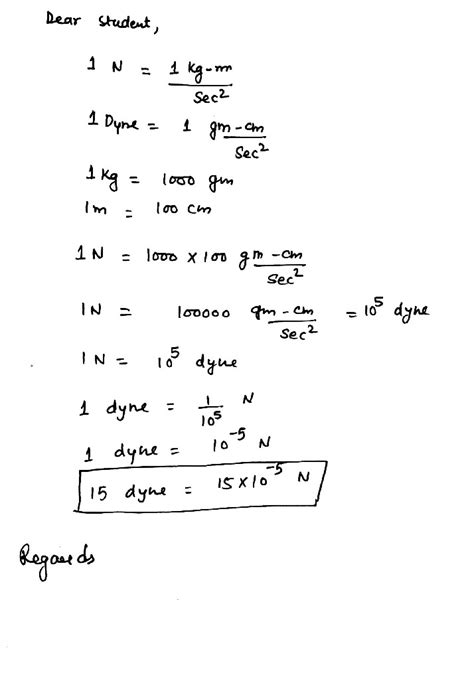 Dear student,
1 N = 1 kg-m/Sec²
1 Dyne = 1 gm-cm/Sec²
1 kg = 1000 gm
1m = 100 cm
1 N = 1000 × 100 gm-cm/Sec²
1N = 100000 gm-cm/Sec² = 10⁵ dyne
1 N = 10⁵ dyne
1 dyne = 1/10⁵ N
1 dyne = 10⁻⁵ N
15 dyne = 15×10⁻⁵ N
Regards